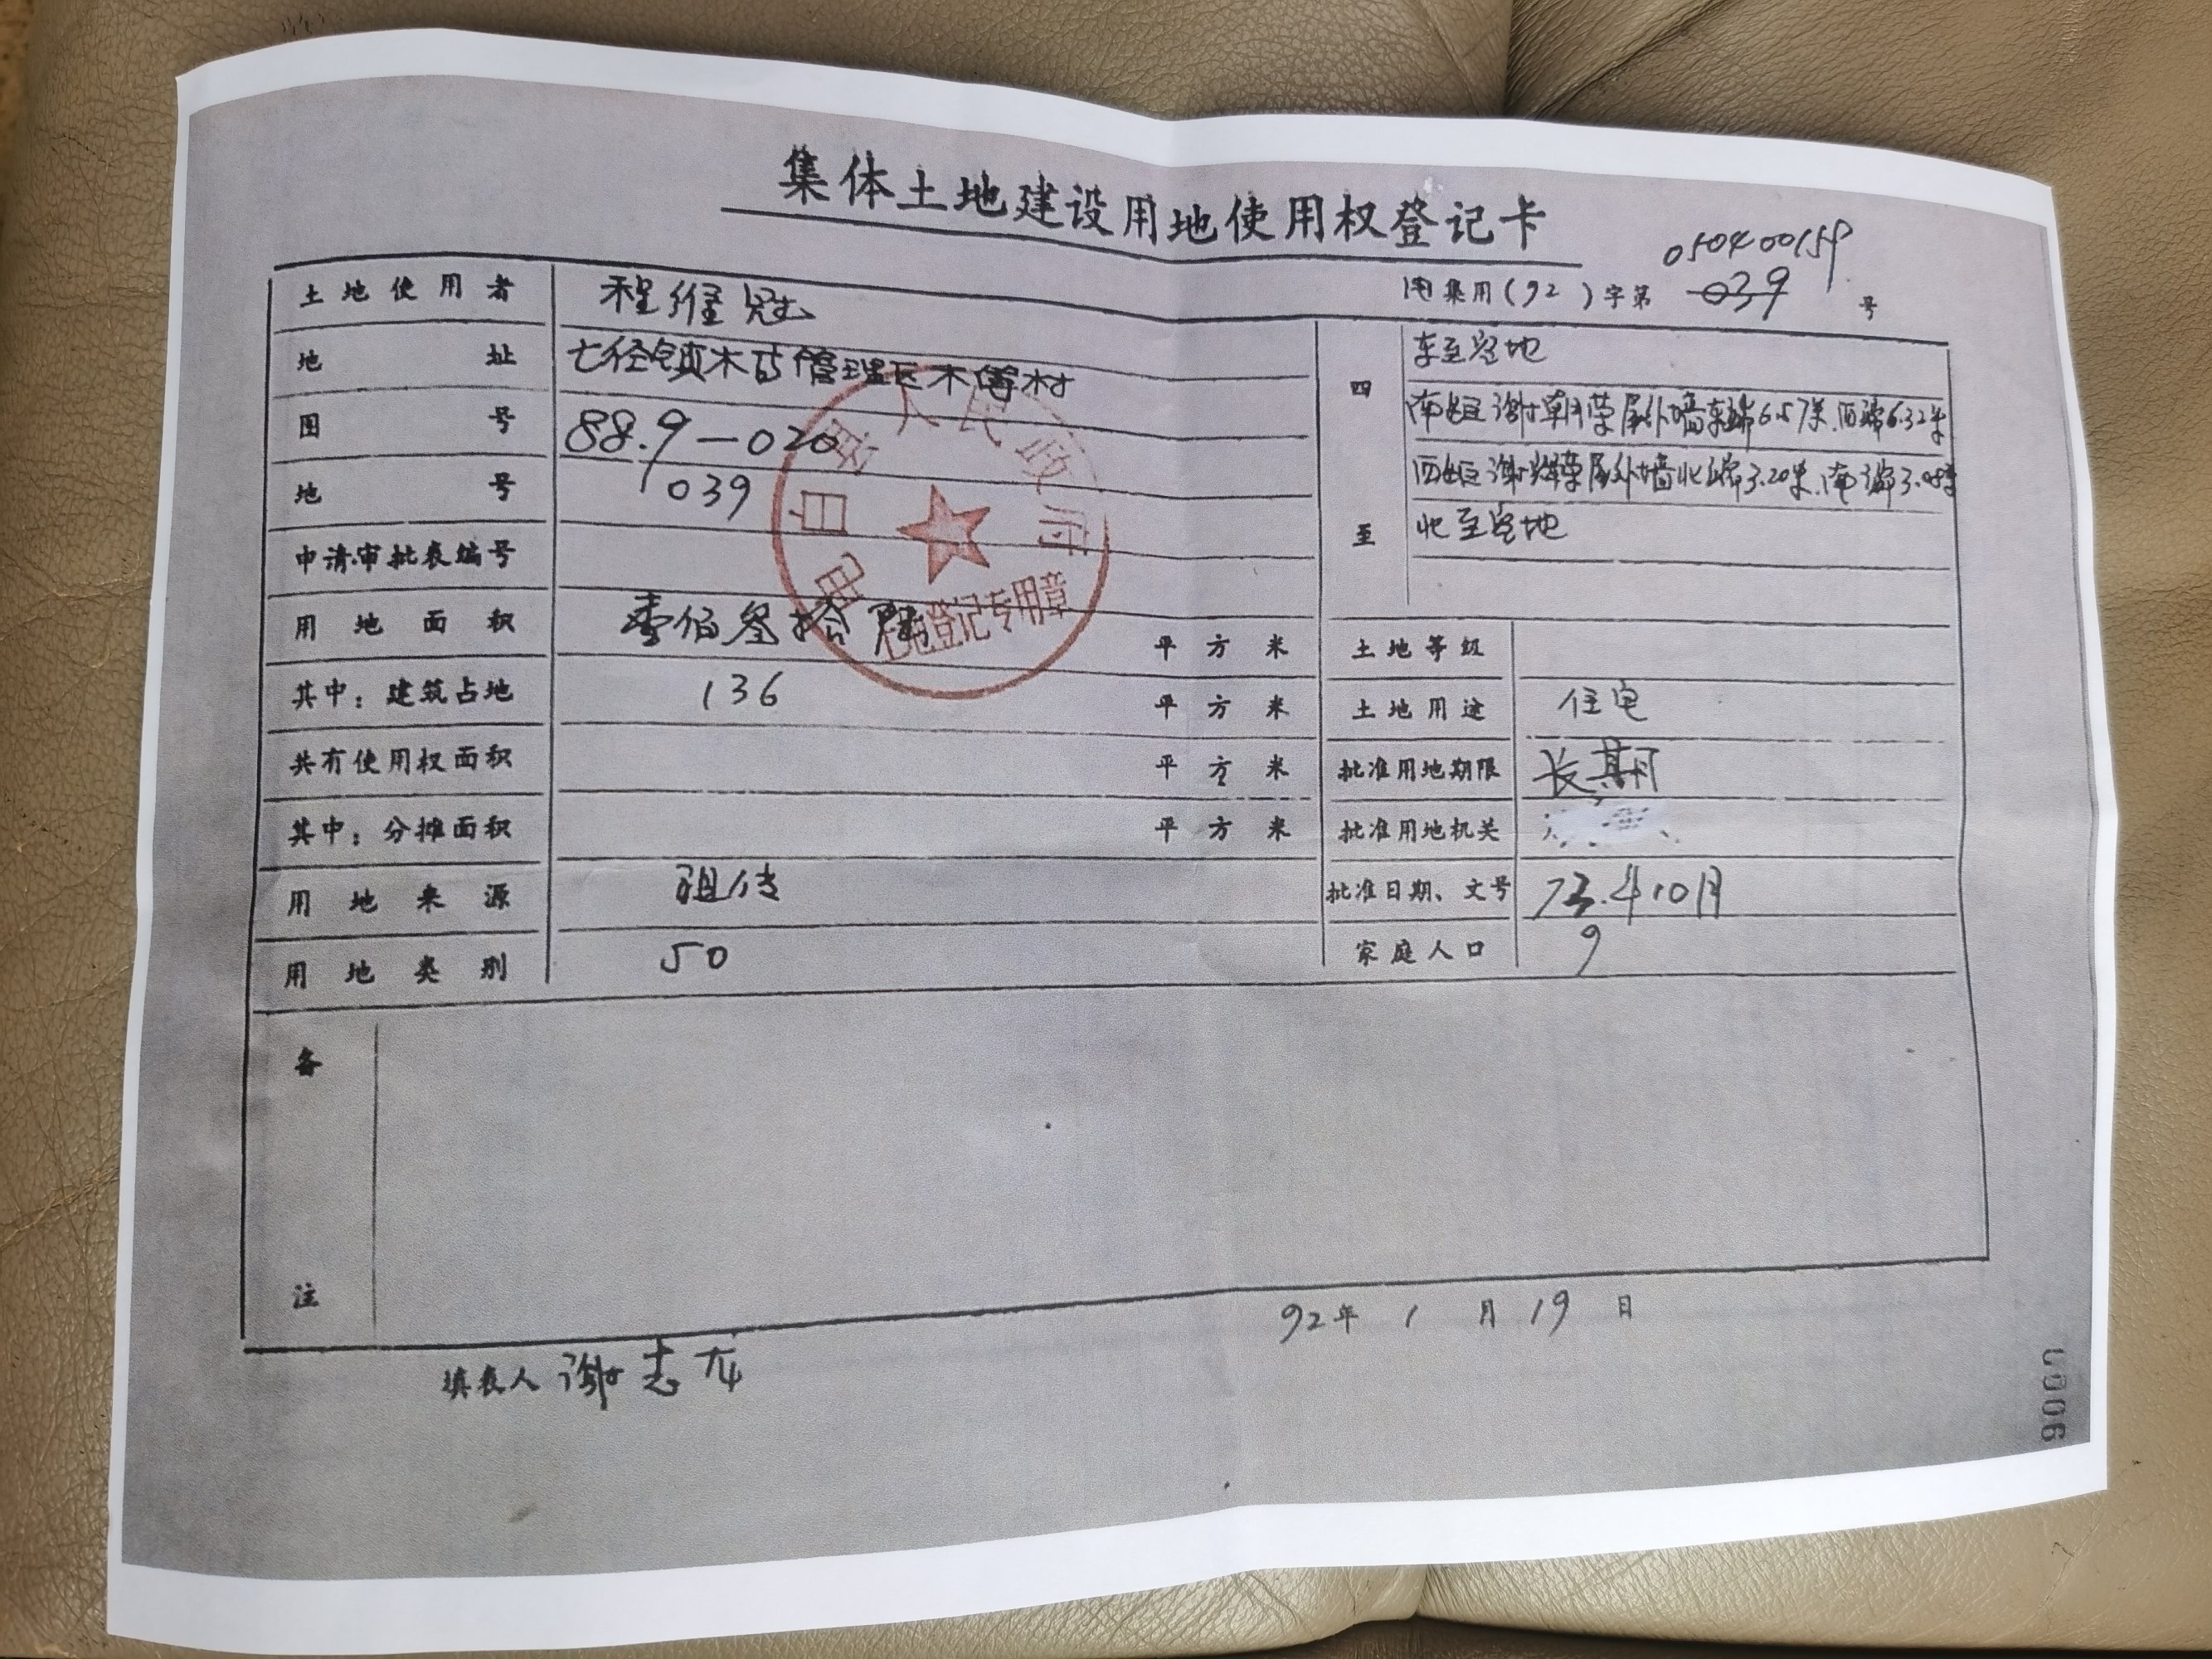 集体土地建设用地使用权登记卡
050400159
电集用(92)字第 039 号
土地使用者 程维冠
地址 七径镇木苛管理区木等村
图号 88.9-020
地号 039
申请审批表编号
用地面积 壹佰叁拾陆 平方米
其中：建筑占地 136 平方米
共有使用权面积 平方米
其中：分摊面积 平方米
用地来源 祖传
用地类别 50
四至
东至空地
南距谢朝荣屋外墙东端6.57米.西端6.32米
西距谢辉荣屋外墙北端3.20米.南端3.08米
北至空地
土地等级
土地用途 住宅
批准用地期限 长期
批准用地机关
批准日期、文号 73.年10月
家庭人口 9
电白县人民政府
土地登记专用章
备注
92年 1 月 19 日
填表人 谢志龙